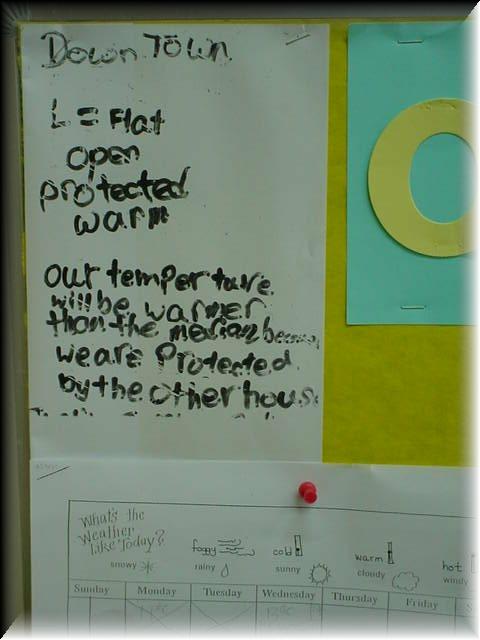 Down Town
L = Flat
open
protected
warm
our temperture
will be warmer
than the merian
we are Protected
by the other hous
O
What's the
Weather
Like Today?
foggy
cold
warm
hot
snowy
rainy
sunny
cloudy
windy
Sunday Monday Tuesday Wednesday Thursday Friday S